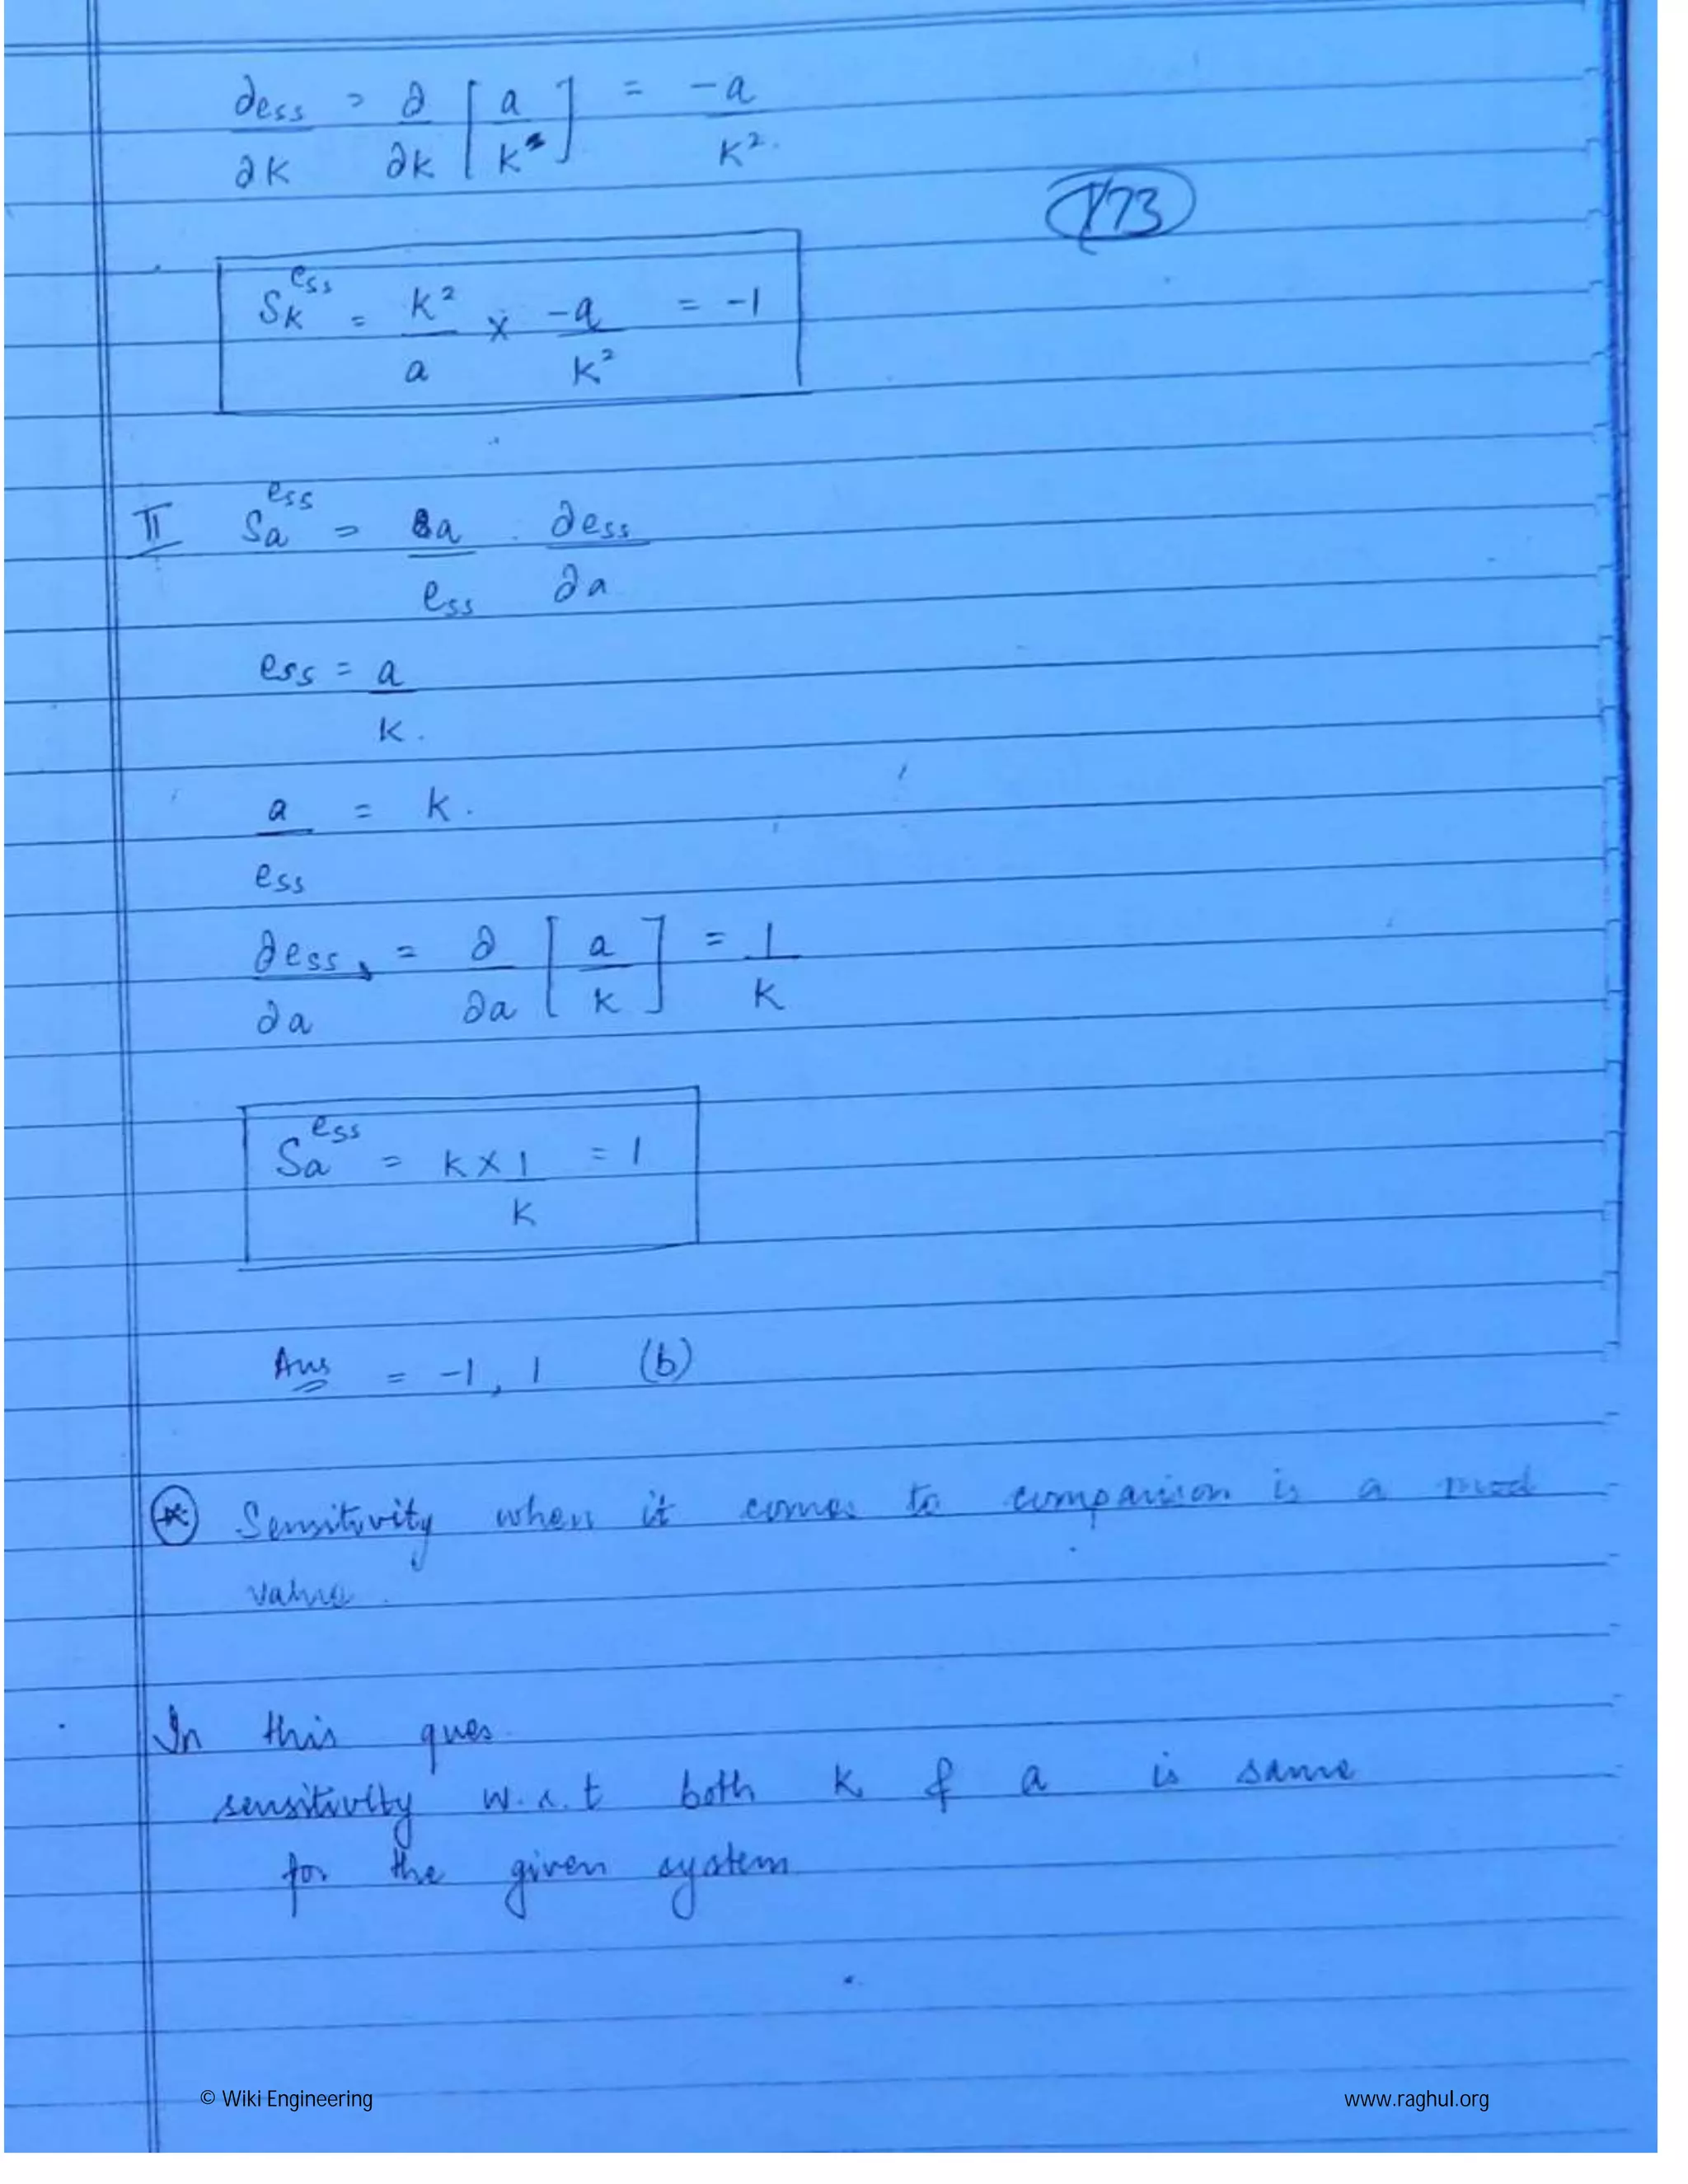 ∂ess/∂K = ∂/∂K [a/K] = -a/K².
173
S_K^ess = K²/a × -a/K² = -1
II S_a^ess = a/ess . ∂ess/∂a
ess = a/K.
a/ess = K.
∂ess/∂a = ∂/∂a [a/K] = 1/K
S_a^ess = K × 1/K = 1
Ans = -1, 1 (b)
* Sensitivity when it comes to comparison is a mod
value.
In this ques.
sensitivity w.r.t both K & a is same
for the given system
© Wiki Engineering www.raghul.org